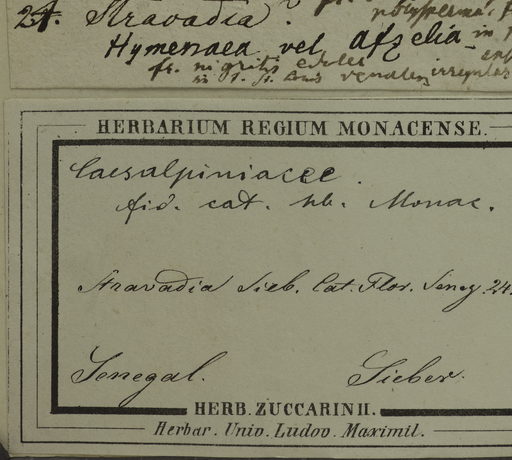 24. Stravadia?
Hymenaea vel afzelia
fr. nigritis edules
venales irregular
HERBARIUM REGIUM MONACENSE.
Caesalpiniacee.
fid. cat. hb. Monac.
Stravadia Sieb. Cat. Flor. Seneg. 24.
Senegal. Sieber.
HERB. ZUCCARINII.
Herbar. Univ. Ludov. Maximil.